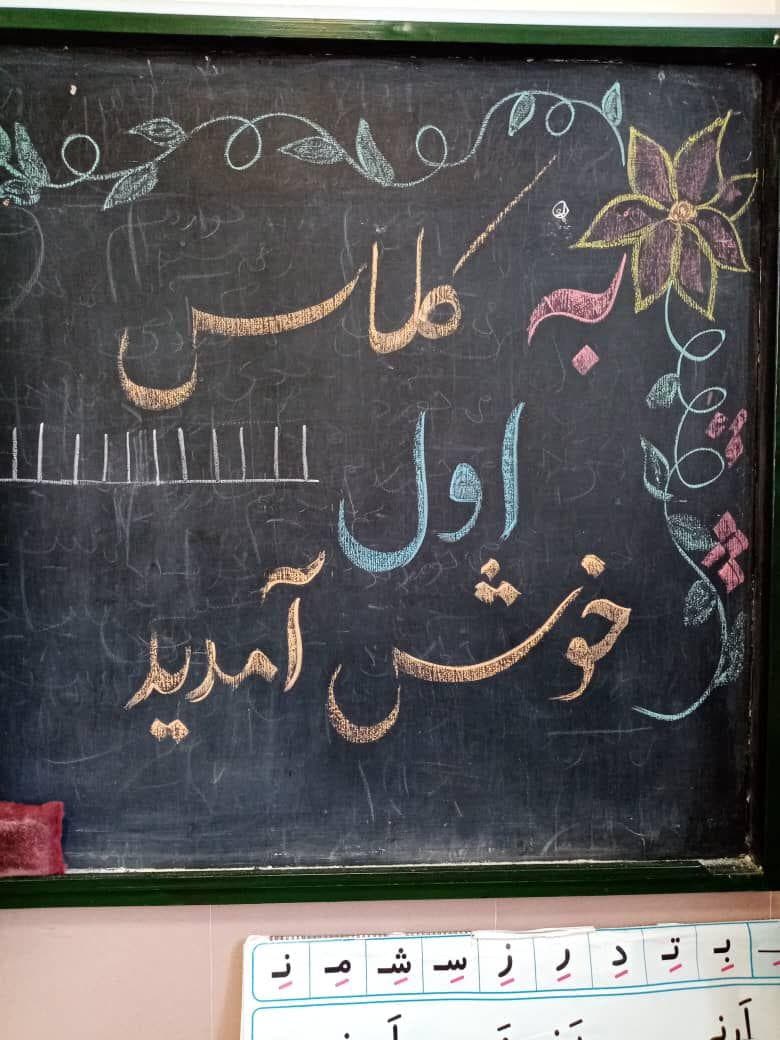 به کلاس
اول
خوش آمدید
بِـ تِـ دِ رِ زِ سِـ شِـ مِـ نِـ